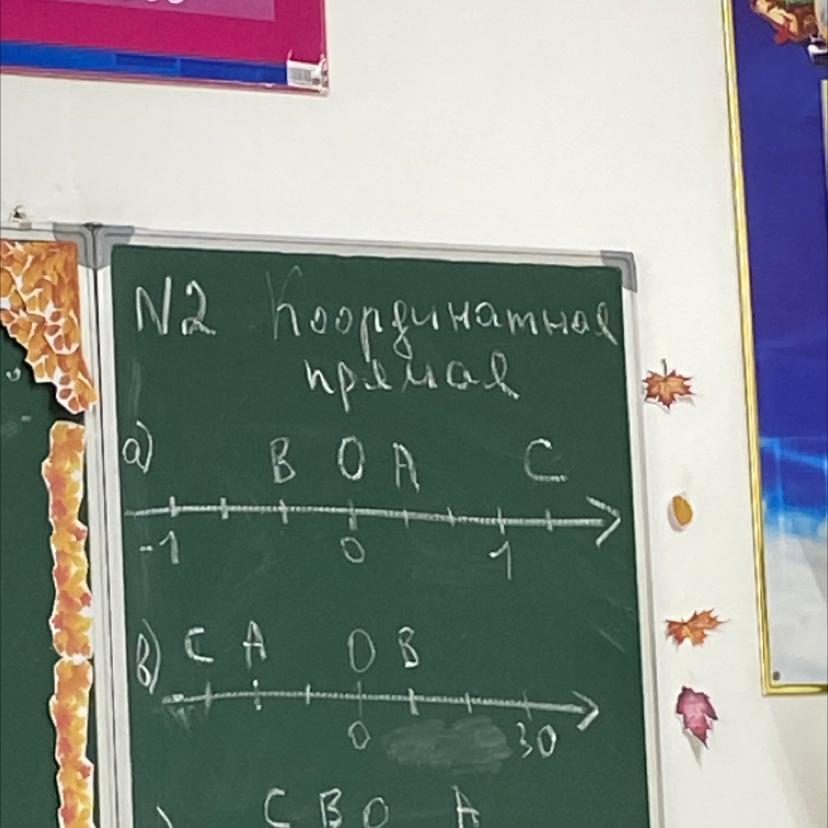 N2 Координатная
прямая
а) B O A C
-1 0 1
в) C A O B
0 30
C B O A